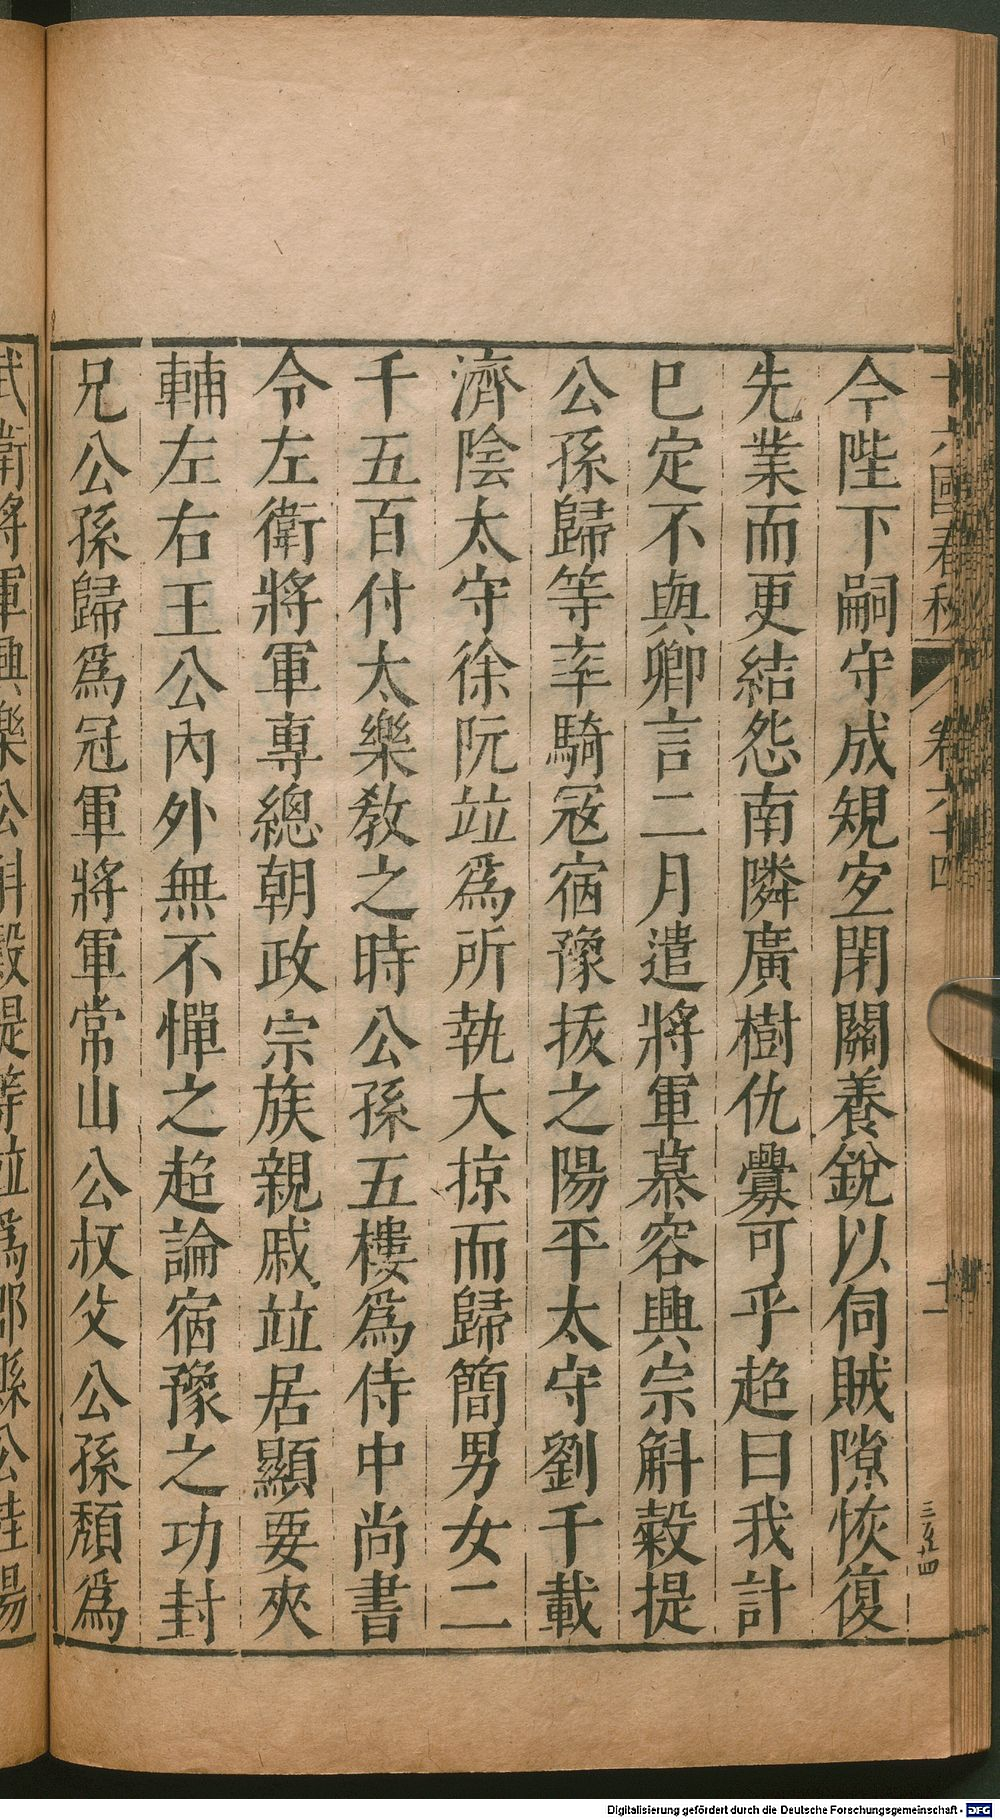 十六國春秋 卷六十四 二
今陛下嗣守成規宐閉關養銳以伺賊隙恢復
先業而更結怨南隣廣樹仇釁可乎超曰我計
已定不與卿言二月遣將軍慕容興宗斛穀提
公孫歸等率騎冦宿豫拔之陽平太守劉千載
濟陰太守徐阮竝爲所執大掠而歸簡男女二
千五百付太樂教之時公孫五樓爲侍中尚書
令左衛將軍專總朝政宗族親戚竝居顯要夾
輔左右王公內外無不憚之超論宿豫之功封
兄公孫歸爲冠軍將軍常山公叔父公孫頹爲
武衛將軍興樂公斛穀提等竝爲郡縣公桂陽
Digitalisierung gefördert durch die Deutsche Forschungsgemeinschaft - DFG